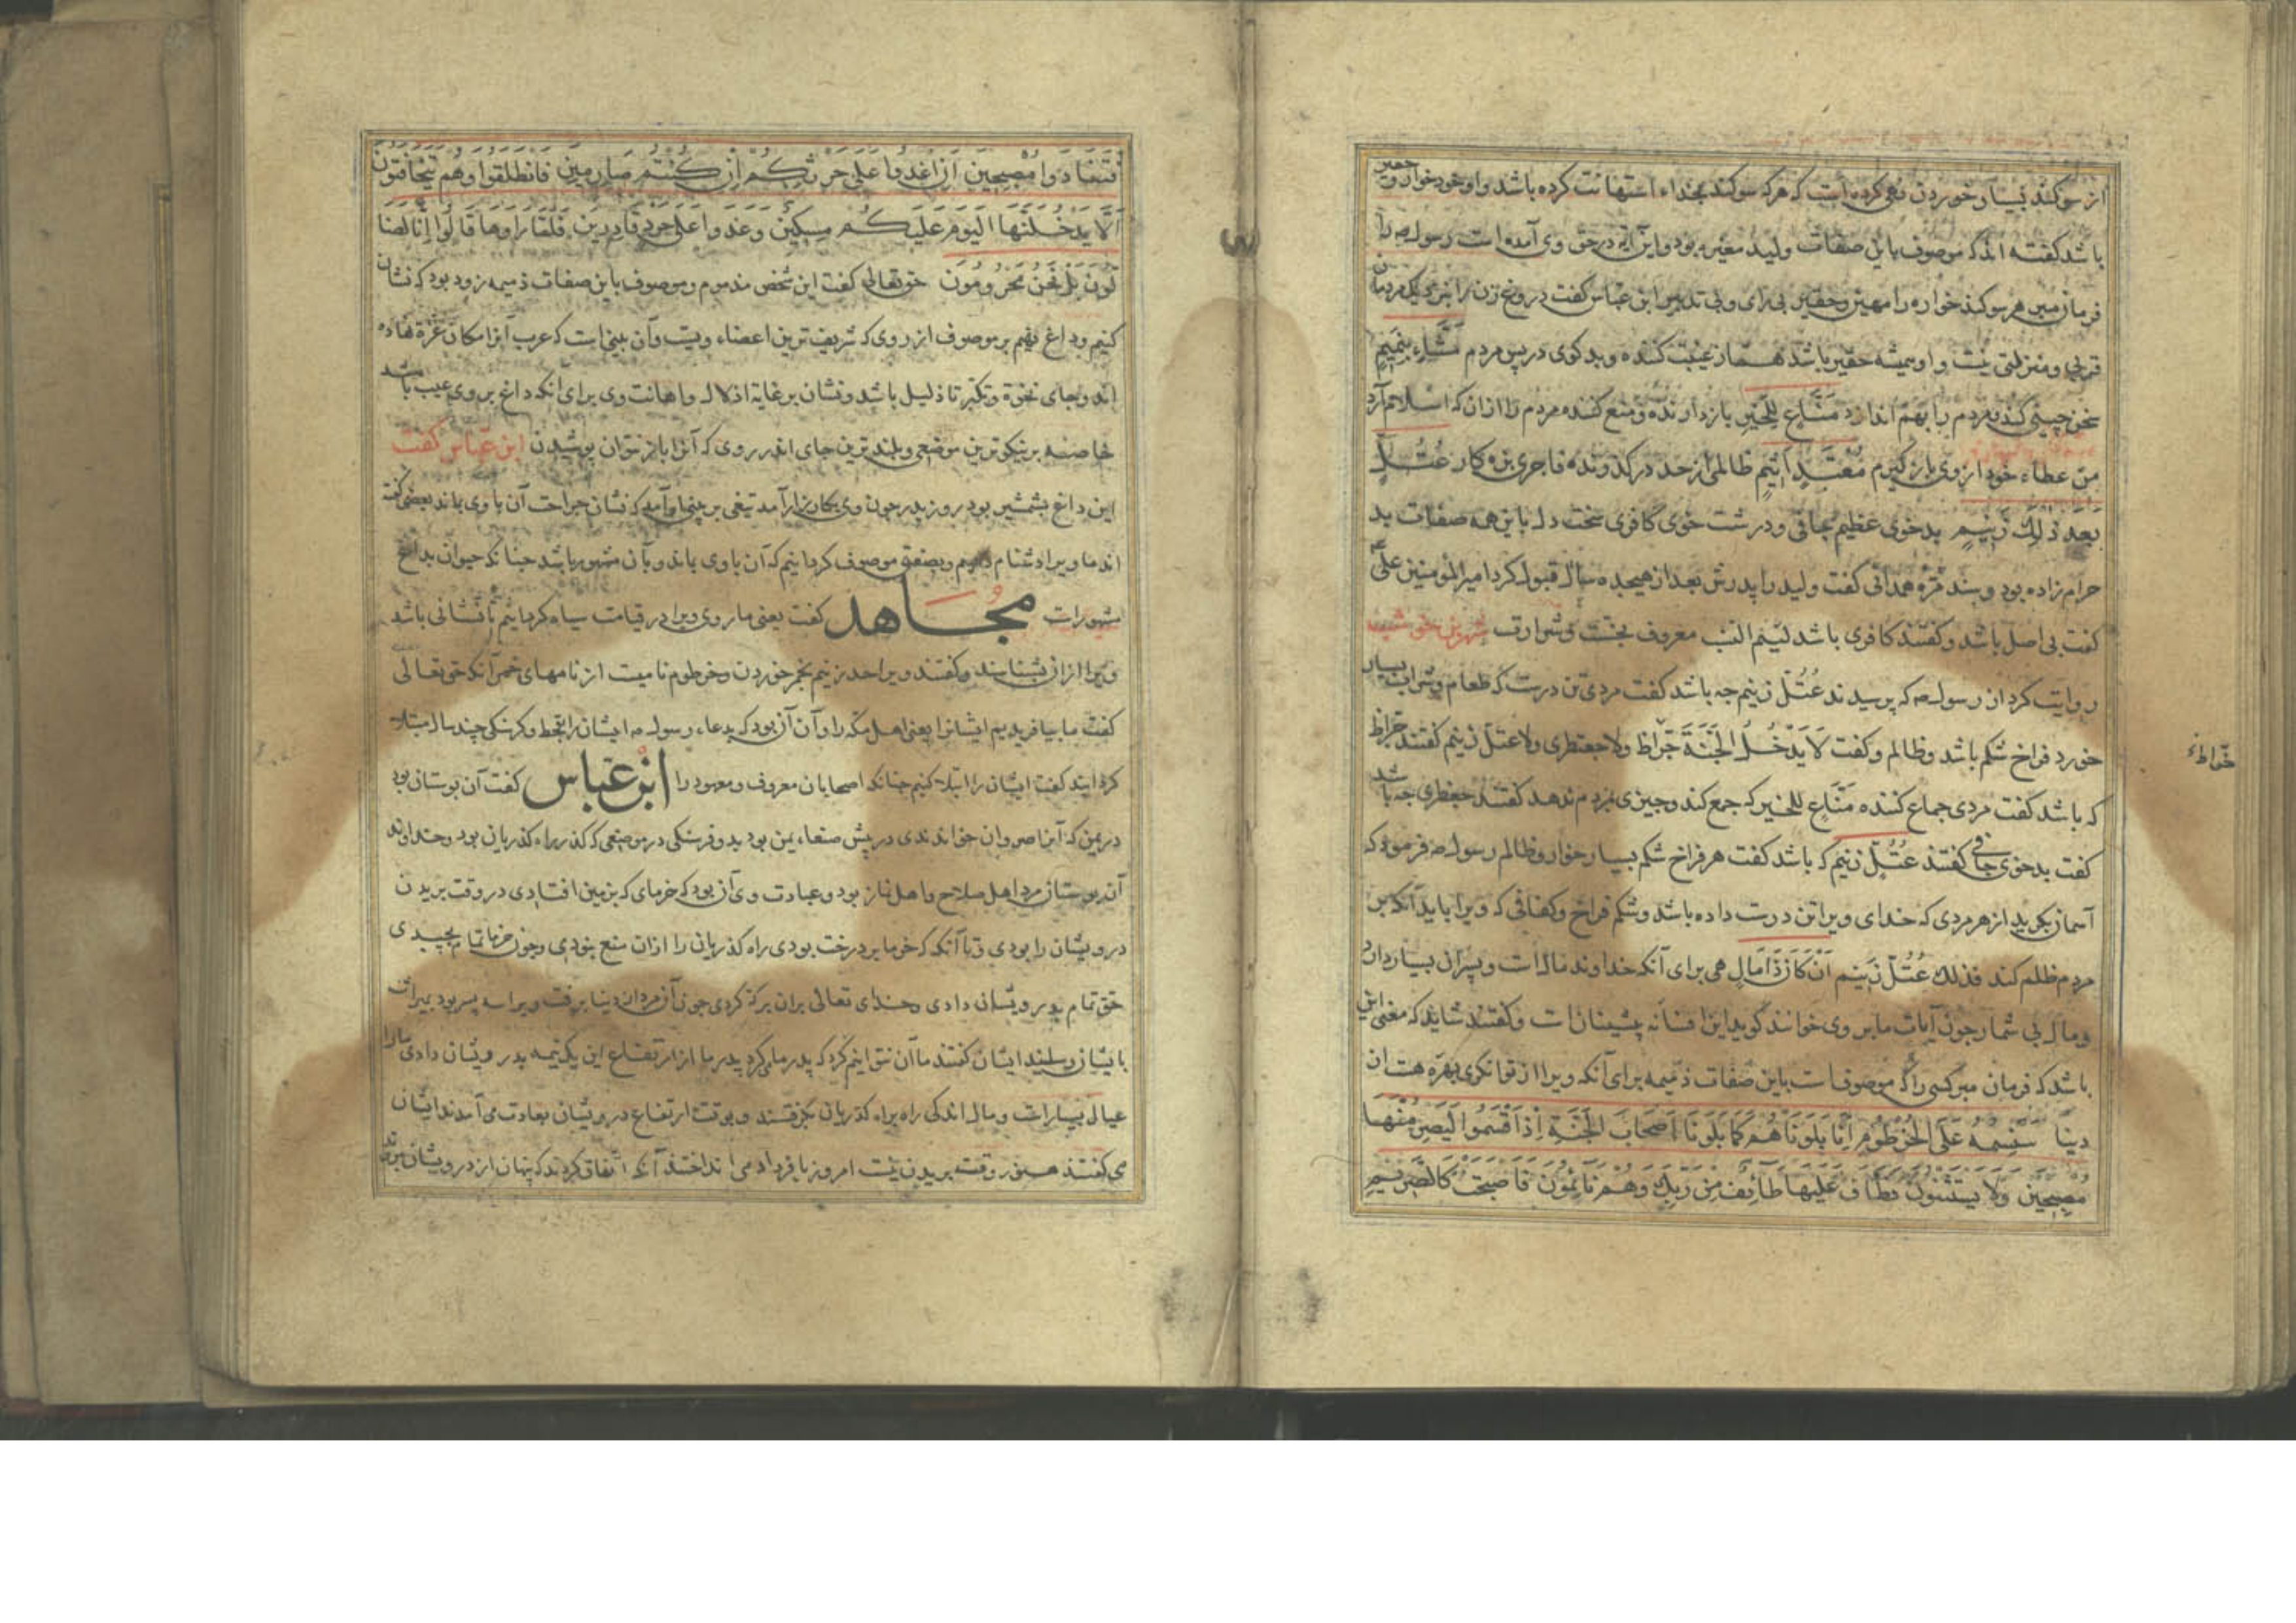 از سوکند بسیار خوردن نهی کرده است که هرکه سوکند بخداء استهانت کرده باشد و او خود خوار و حقیر
باشد گفته اند که موصوف باین صفات ولید مغیره بود و این آیه در حق وی آمده است رسول صه را
فرمان مبر هر سوکند خواره را مهین و حقیر بی رای و بی تدبیر ابن عباس گفت دروغ زن را بنزدیک مردمان
قربی و منزلتی نیست و او همیشه حقیر باشد همّاز غیبت کننده و بد کوی در پس مردم مَشَّاءٍ بِنَمِیمٍ
سخن چینی کند مردم را بهم اندازد مَنَّاعٍ لِلْخَیْرِ باز دارنده و منع کننده مردم را ازان که اسلام آرد
من عطاء خود از وی باز گیرم مُعْتَدٍ اَثِیمٍ ظالمی از حد درگذرنده فاجری بزه کار عُتُلٍّ
بَعْدَ ذٰلِکَ زَنِیمٍ بدخوی عظیم جافی و درشت خوی کافری سخت دل با این همه صفات بد
حرام زاده بود و سند مُرّه همدانی گفت ولید را پدرش بعد از هیجده سال قبول کرد امیر المؤمنین علی
گفت بی اصل باشد و گفتند کافری باشد لئیم النسب معروف بخبث و شرارت شهر بن حوشب
روایت کرد از رسول صه که پرسیدند عُتُلّ زنیم چه باشد گفت مردی تن درست که طعام و شراب بسیار
خورد فراخ شکم باشد و ظالم و گفت لَا یَدْخُلُ الْجَنَّةَ جَوّاظ ولا جعظری ولا عتلّ زنیم گفتند جواظ
خوّاط
که باشد گفت مردی جماع کننده مَنَّاعٍ للخیر که جمع کند و چیزی بمردم ندهد گفتند جعظری چه باشد
گفت بدخوی جافی گفتند عُتُلّ زنیم که باشد گفت هر فراخ شکم بسیار خوار و ظالم رسول صه فرمود که
آسمان بگرید از هر مردی که خدای ویرا تن درست داده باشد و شکم فراخ و کفافی که ویرا باید آنکه بر
مردم ظلم کند فذلک عُتُلّ زَنیم اَنْ کَانَ ذَا مَالٍ هی برای آنکه خداوند مال است و پسران بسیار دارد
و مال بی شمار چون آیات ما بر وی خوانند گوید این افسانه پیشینان است و گفتند شاید که معنی این
باشد که فرمان مبر کسی را که موصوفست باین صفات ذمیمه برای آنکه ویرا از توانکری بهره هست از
دنیا سَنَسِمُهُ عَلَی الْخُرْطُومِ اِنَّا بَلَوْنَاهُمْ کَمَا بَلَوْنَا اَصْحَابَ الْجَنَّةِ اِذْ اَقْسَمُوا لَیَصْرِمُنَّهَا
مُصْبِحِینَ وَلَا یَسْتَثْنُونَ فَطَافَ عَلَیْهَا طَائِفٌ مِنْ رَبِّکَ وَهُمْ نَائِمُونَ فَاَصْبَحَتْ کَالصَّرِیمِ
فَتَنَادَوْا مُصْبِحِینَ اَنِ اغْدُوا عَلَی حَرْثِکُمْ اِنْ کُنْتُمْ صَارِمِینَ فَانْطَلَقُوا وَهُمْ یَتَخَافَتُونَ
اَلَّا یَدْخُلَنَّهَا الْیَوْمَ عَلَیْکُمْ مِسْکِینٌ وَغَدَوْا عَلَی حَرْدٍ قَادِرِینَ فَلَمَّا رَاَوْهَا قَالُوا اِنَّا لَضَا
لُّونَ بَلْ نَحْنُ مَحْرُومُونَ حق تعالی گفت این شخص مذموم و موصوف باین صفات ذمیمه زود بود که نشان
کنیم و داغ نهیم بر موصوف از روی که شریف ترین اعضاء ویست و آن بینی است که عرب آنرا مکان عزة نهاده
اند و بجای نخوة و تکبر تا ذلیل باشد و نشان بر غایة اذلال و اهانت وی برای آنکه داغ بر وی عیب باشد
خاصه بر نیکوترین موضعی و بلندترین جای اندر روی که آنرا باز نتوان پوشیدن ابن عبّاس گفت
این داغ بشمشیر بود روز بدر چون وی بکارزار آمد تیغی بر بینی او آمد که نشان جراحت آن با وی بماند بعضی گفته
اند ما ویرا دشنام دهیم و بصفتی موصوف گردانیم که آن باوی بماند و بآن مشهور باشد چنانکه حیوان بداغ
مشهورات مجاهد گفت یعنی ما روی ویرا در قیامت سیاه گردانیم تا نشانی باشد
ویرا ازان بشناسند و گفتند ویرا حد زنیم بخمر خوردن و خرطوم نامیست از نامهای خمر آنکه حق تعالی
گفت ما بیافریدیم ایشانرا یعنی اهل مکّه را و آن آن بود که بدعاء رسول صه ایشان را بقحط و گرسنکی چند سال مبتلا
کردایند گفت ایشان را ابتلا کنیم چنانکه اصحابان معروف و معهود را ابن عبّاس گفت آن بوستان بود
در یمن که آنرا صروان خواندندی در پیش صنعاء یمن بود بدو فرسنکی در موضعی که گذر راه گذریان بود و خداوند
آن بوستان مرد اهل صلاح و اهل نماز بود و عبادت وی آن بود که خرمای که بزمین افتادی در وقت بریدن
درویشان را بودی و تا آنکه که خرما بر درخت بودی راه گذریان را ازان منع نبودی و چون خرما تمام بچیدی
حق تمام بدرویشان دادی و خدای تعالی بران برکه کردی چون آن مرد از دنیا برفت ویرا سه پسر بود بمیراث
بایشان رسید ایشان گفتند ما آن نتوانیم کرد که پدر ما میکرد پدر ما از ارتفاع این یک نیمه بدرویشان دادی ما را
عیال بسیارات و مال اندکی راه براه گذریان بگرفتند و بوقت ارتفاع درویشان بعادت می آمدند ایشان
می گفتند هنوز وقت بریدن نیست امروز با فردا می انداختند آنکه اتّفاق کردند که پنهان از درویشان بروند